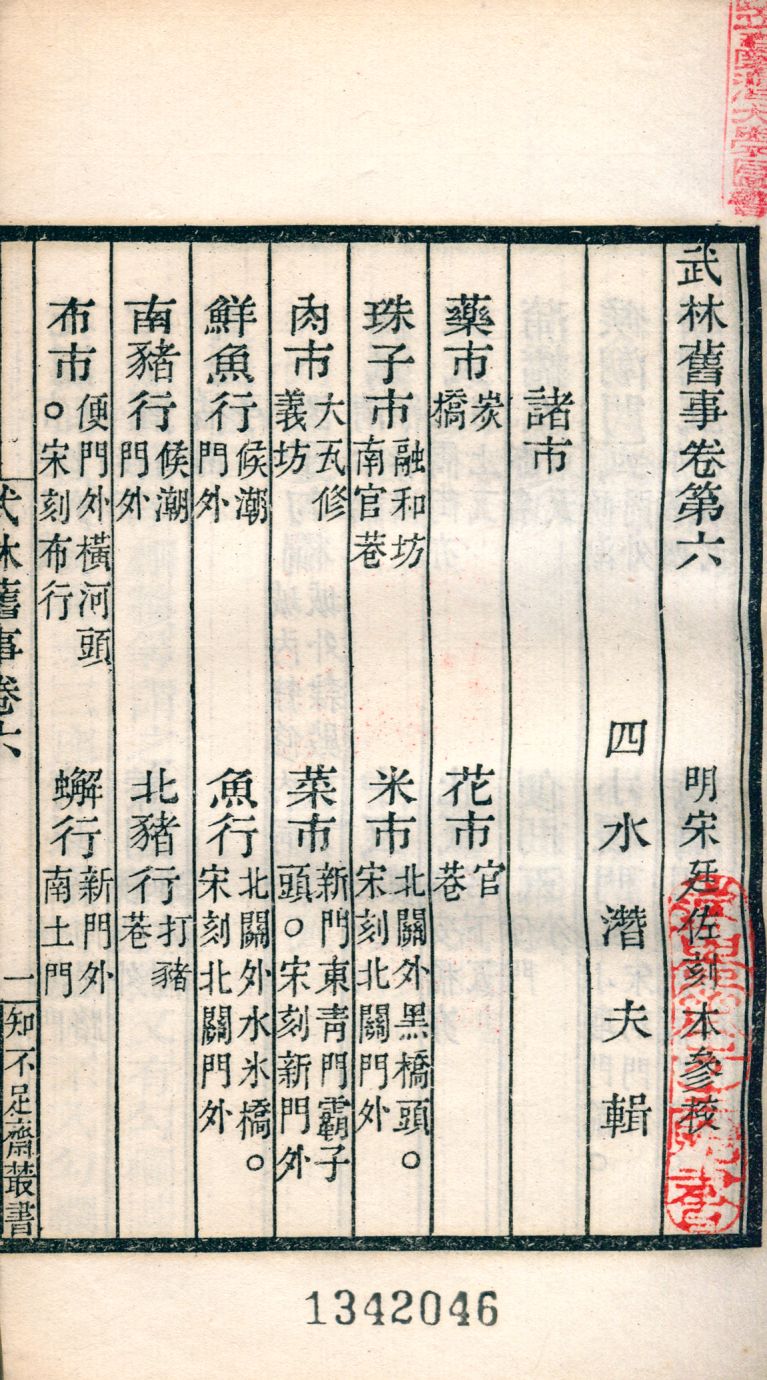 武林舊事卷第六 明宋廷佐刻本參校
四水潛夫輯
諸市
藥市 炭橋 花市 官巷
珠子市 融和坊南官巷 米市 北關外黑橋頭。宋刻北關門外
肉市 大瓦修義坊 菜市 新門東青門霸子頭。宋刻新門外
鮮魚行 候潮門外 魚行 北關外水氷橋。宋刻北關門外
南豬行 候潮門外 北豬行 打豬巷
布市 便門外橫河頭。宋刻布行 蠏行 新門外南土門
武林舊事卷六 一 知不足齋叢書
1342046